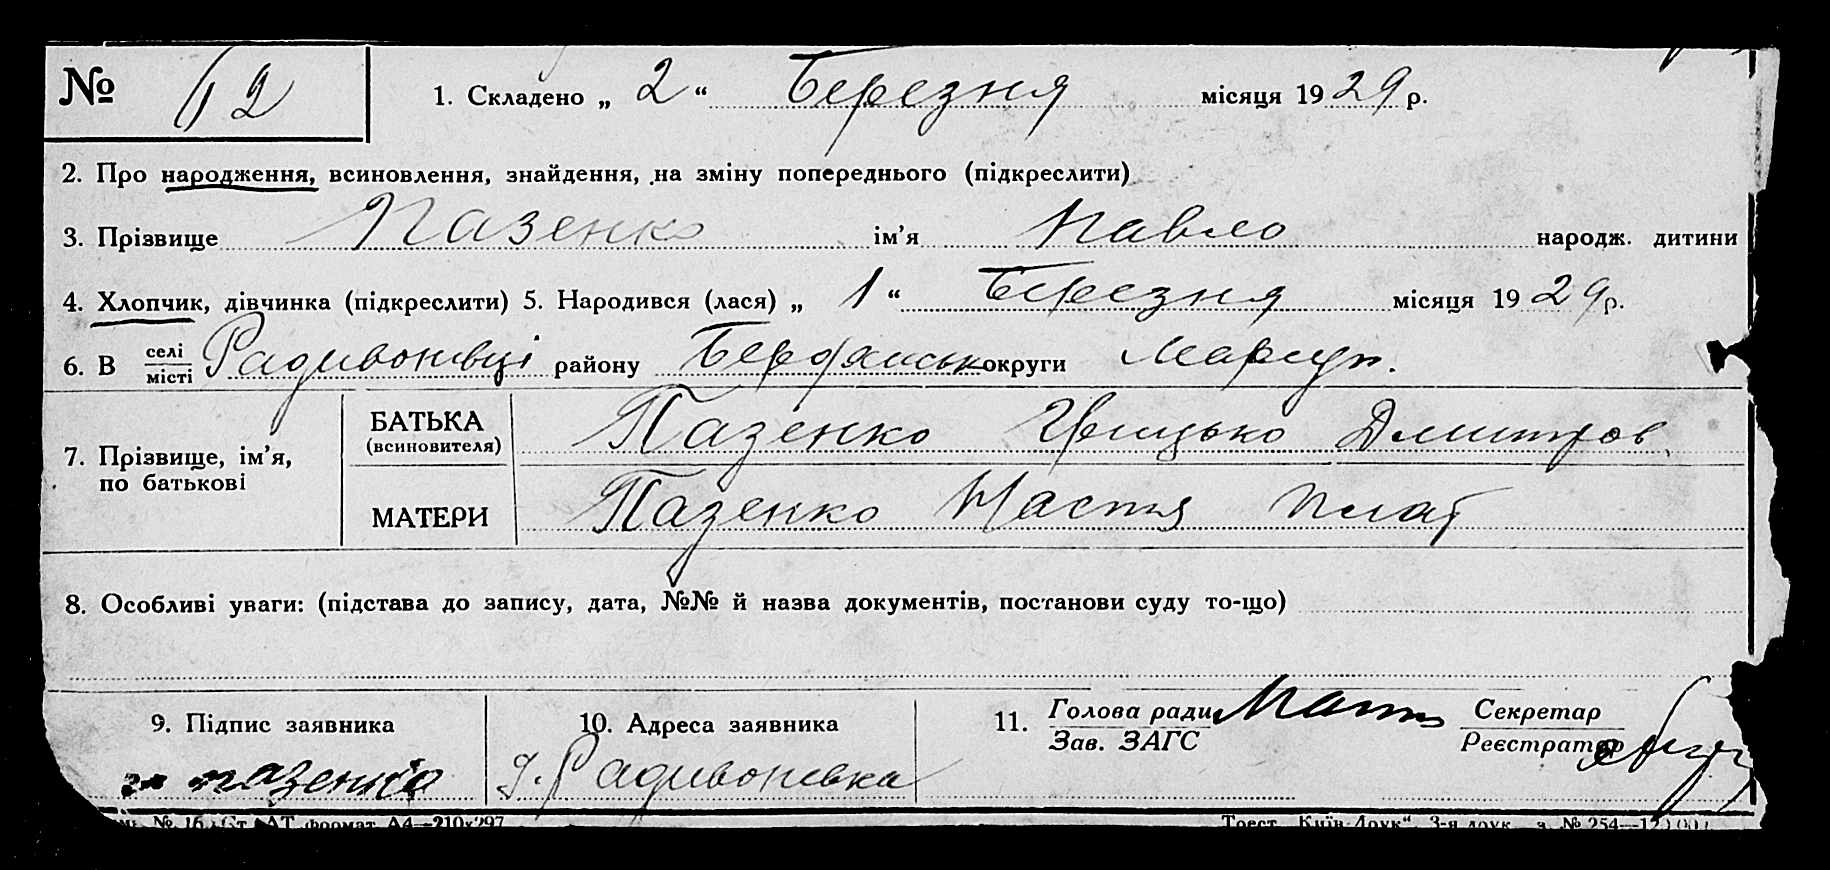 № 62 1. Складено „ 2 “ Березня місяця 1929 р.
2. Про народження, всиновлення, знайдення, на зміну попереднього (підкреслити)
3. Прізвище Пазенко ім’я Павло народж. дитини
4. Хлопчик, дівчинка (підкреслити) 5. Народився (лася) „ 1 “ Березня місяця 1929 р.
6. В селі місті Радивонівці району Бердянськ округи Маріуп.
7. Прізвище, ім’я, по батькові
БАТЬКА (всиновителя) Пазенко Грицько Дмитров
МАТЕРИ Пазенко Настя Плат
8. Особливі уваги: (підстава до запису, дата, №№ й назва документів, постанови суду то-що)
9. Підпис заявника
Пазенко
10. Адреса заявника
Радивонівка
11. Голова ради Зав. ЗАГС
Секретар Реєстратор
№ 16 Ст. АТ формат А4—210х297
Трест „Київ-Друк“, 3-я друк. з. № 254—12